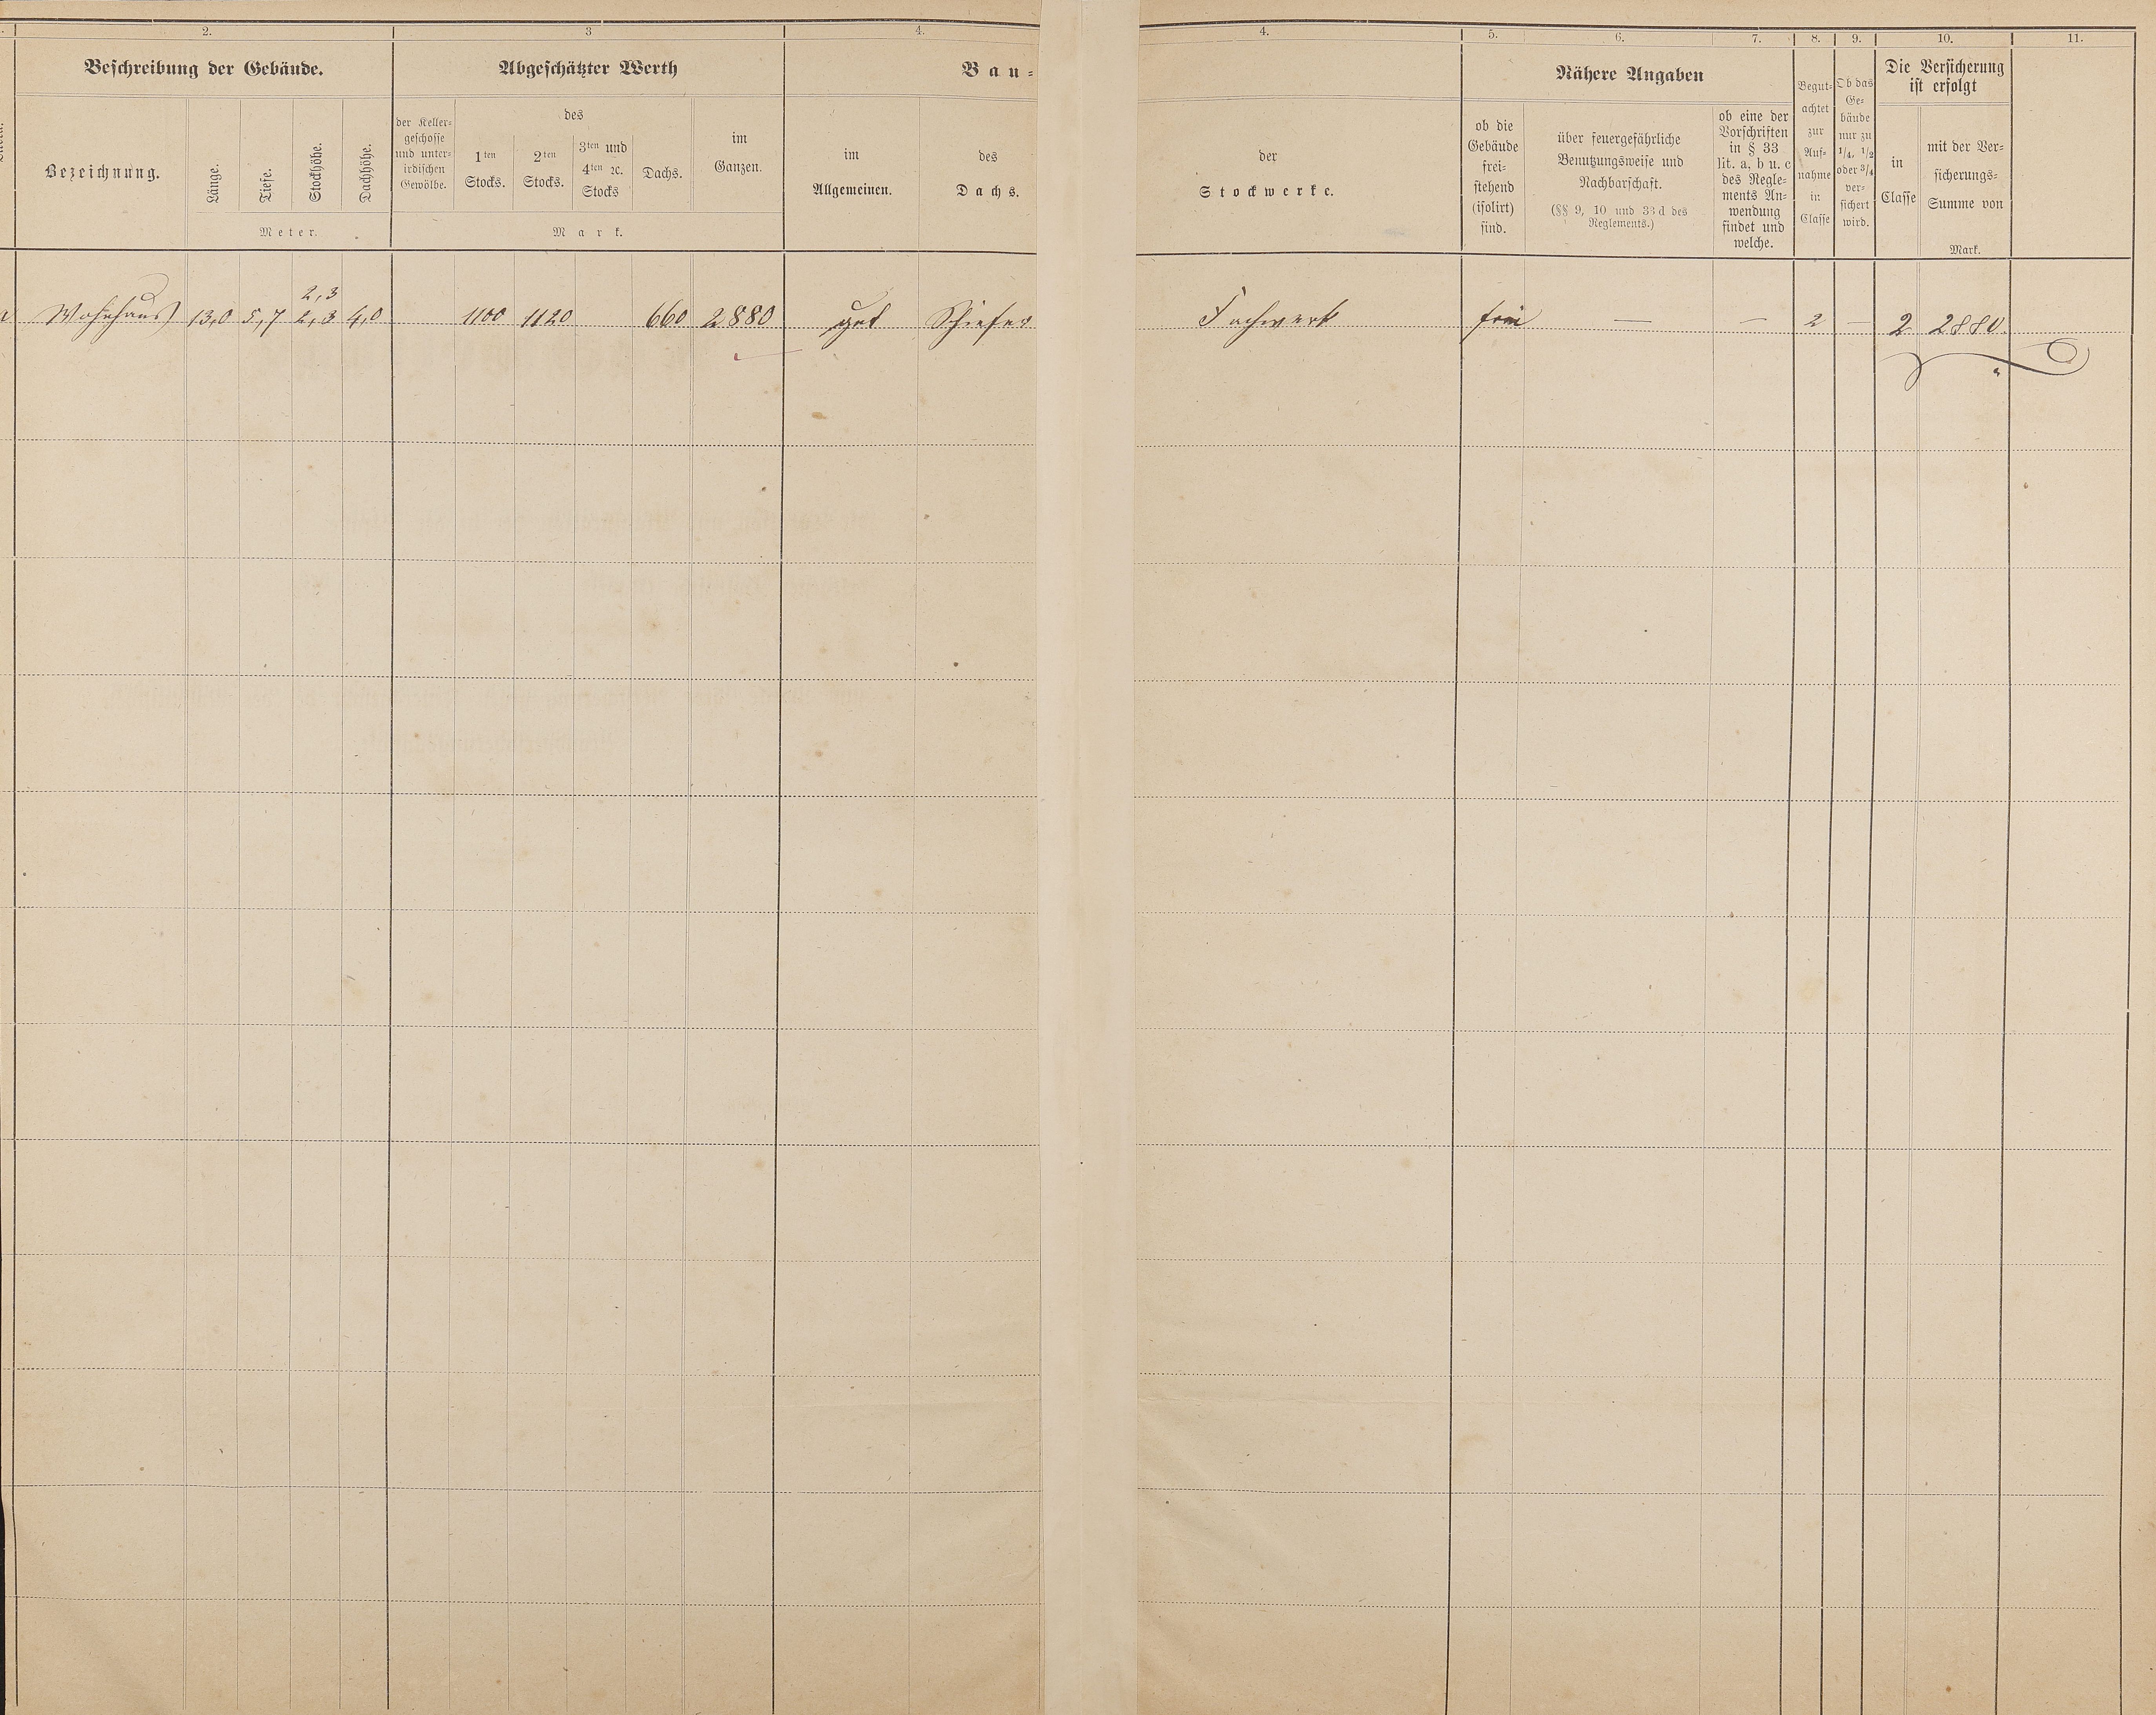 2. 3 4. 4. 5. 6. 7. 8. 9. 10. 11.
Beschreibung der Gebäude. Abgeschätzter Werth Bau- Nähere Angaben Die Versicherung ist erfolgt
Bezeichnung.
Länge.
Tiefe.
Stockhöhe.
Dachhöhe.
Meter.
der Keller-
geschosse
und unter-
irdischen
Gewölbe.
des
1ten
Stocks.
2ten
Stocks.
3ten und
4ten ꝛc.
Stocks
Dachs.
im
Ganzen.
Mark.
im
Allgemeinen.
des
Dachs.
der
Stockwerke.
ob die
Gebäude
frei-
stehend
(isolirt)
sind.
über feuergefährliche
Benutzungsweise und
Nachbarschaft.
(§§ 9, 10 und 33 d des
Reglements.)
ob eine der
Vorschriften
in § 33
lit. a. b u. c
des Regle-
ments An-
wendung
findet und
welche.
Begut-
achtet
zur
Auf-
nahme
in
Classe
Ob das
Ge-
bäude
nur zu
1/4, 1/2
oder 3/4
ver-
sichert
wird.
in
Classe
mit der Ver-
sicherungs-
Summe von
Mark.
2,3
Wohnhaus 13,0 5,7 2,3 4,0 1100 1120 660 2880 gut Schiefer Fachwerk frei — — 2 — 2 2880.